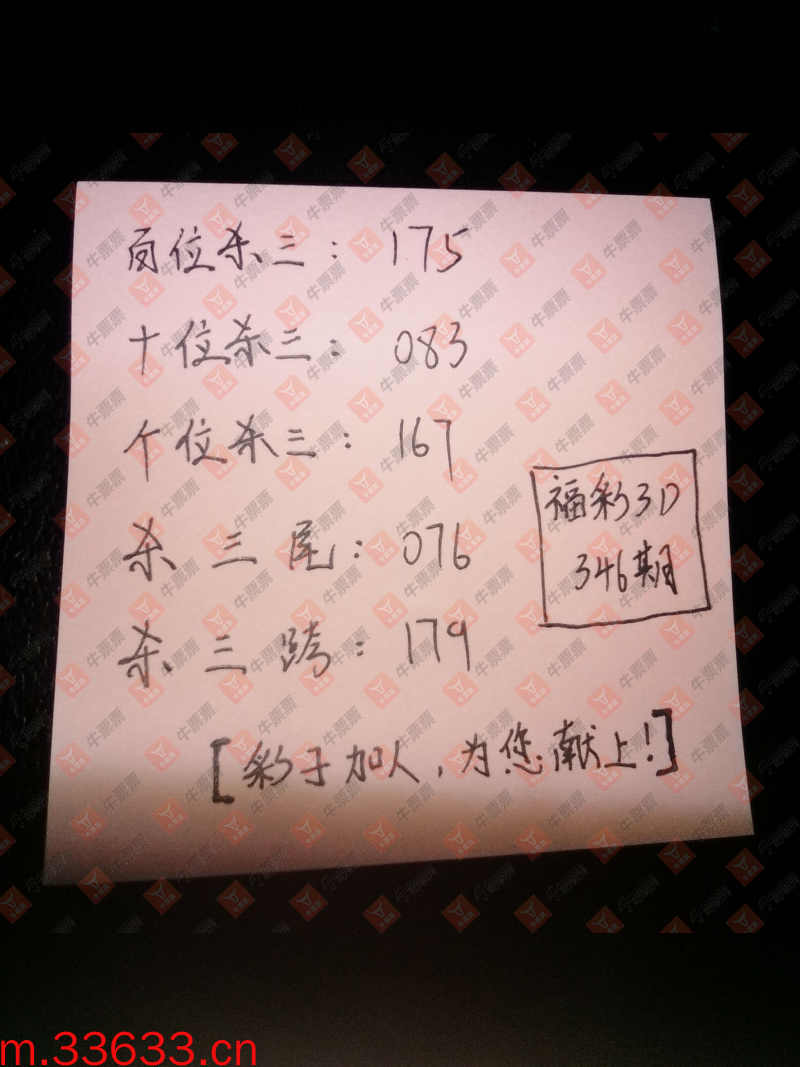 百位杀三: 175
十位杀三: 083
个位杀三: 167
杀三尾: 076
杀三跨: 179
福彩3D
346期
[彩于加人,为您献上!]
牛票票
m.33633.cn